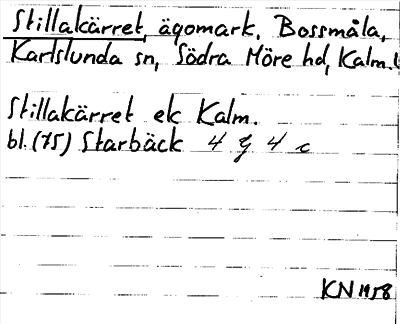 Stillakärret, ägomark, Bossmåla,
Karlslunda sn, Södra Möre hd, Kalm. l
Stillakärret ek Kalm.
bl. (75) Starbäck 4 G 4 c
KN 1958